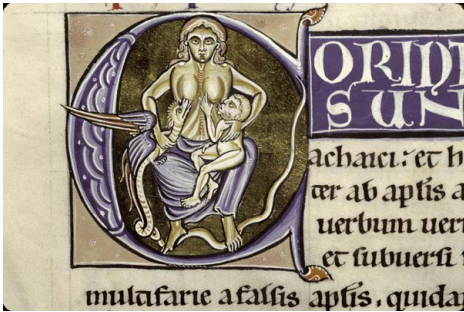 CORINT
SUN
achaici: et h
ter ab aplis a
uerbum ueri
et subuersi
multifarie a falsis aplis. quida